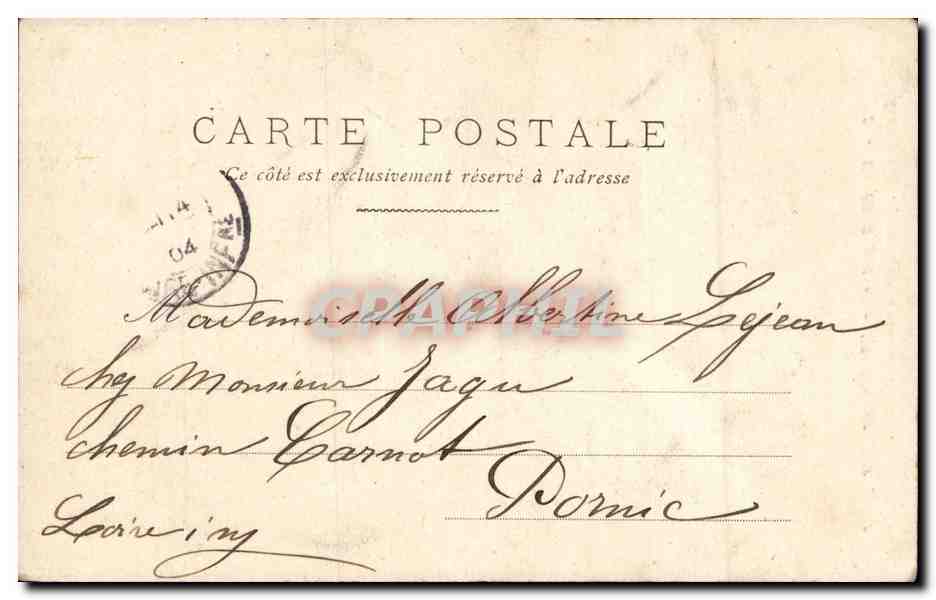 CARTE POSTALE
Ce côté est exclusivement réservé à l'adresse
04
INFRE
CPAPHIL
Mademoiselle Albertine Lejean
chez Monsieur Jagu
chemin Carnot
Pornic
Loire inf